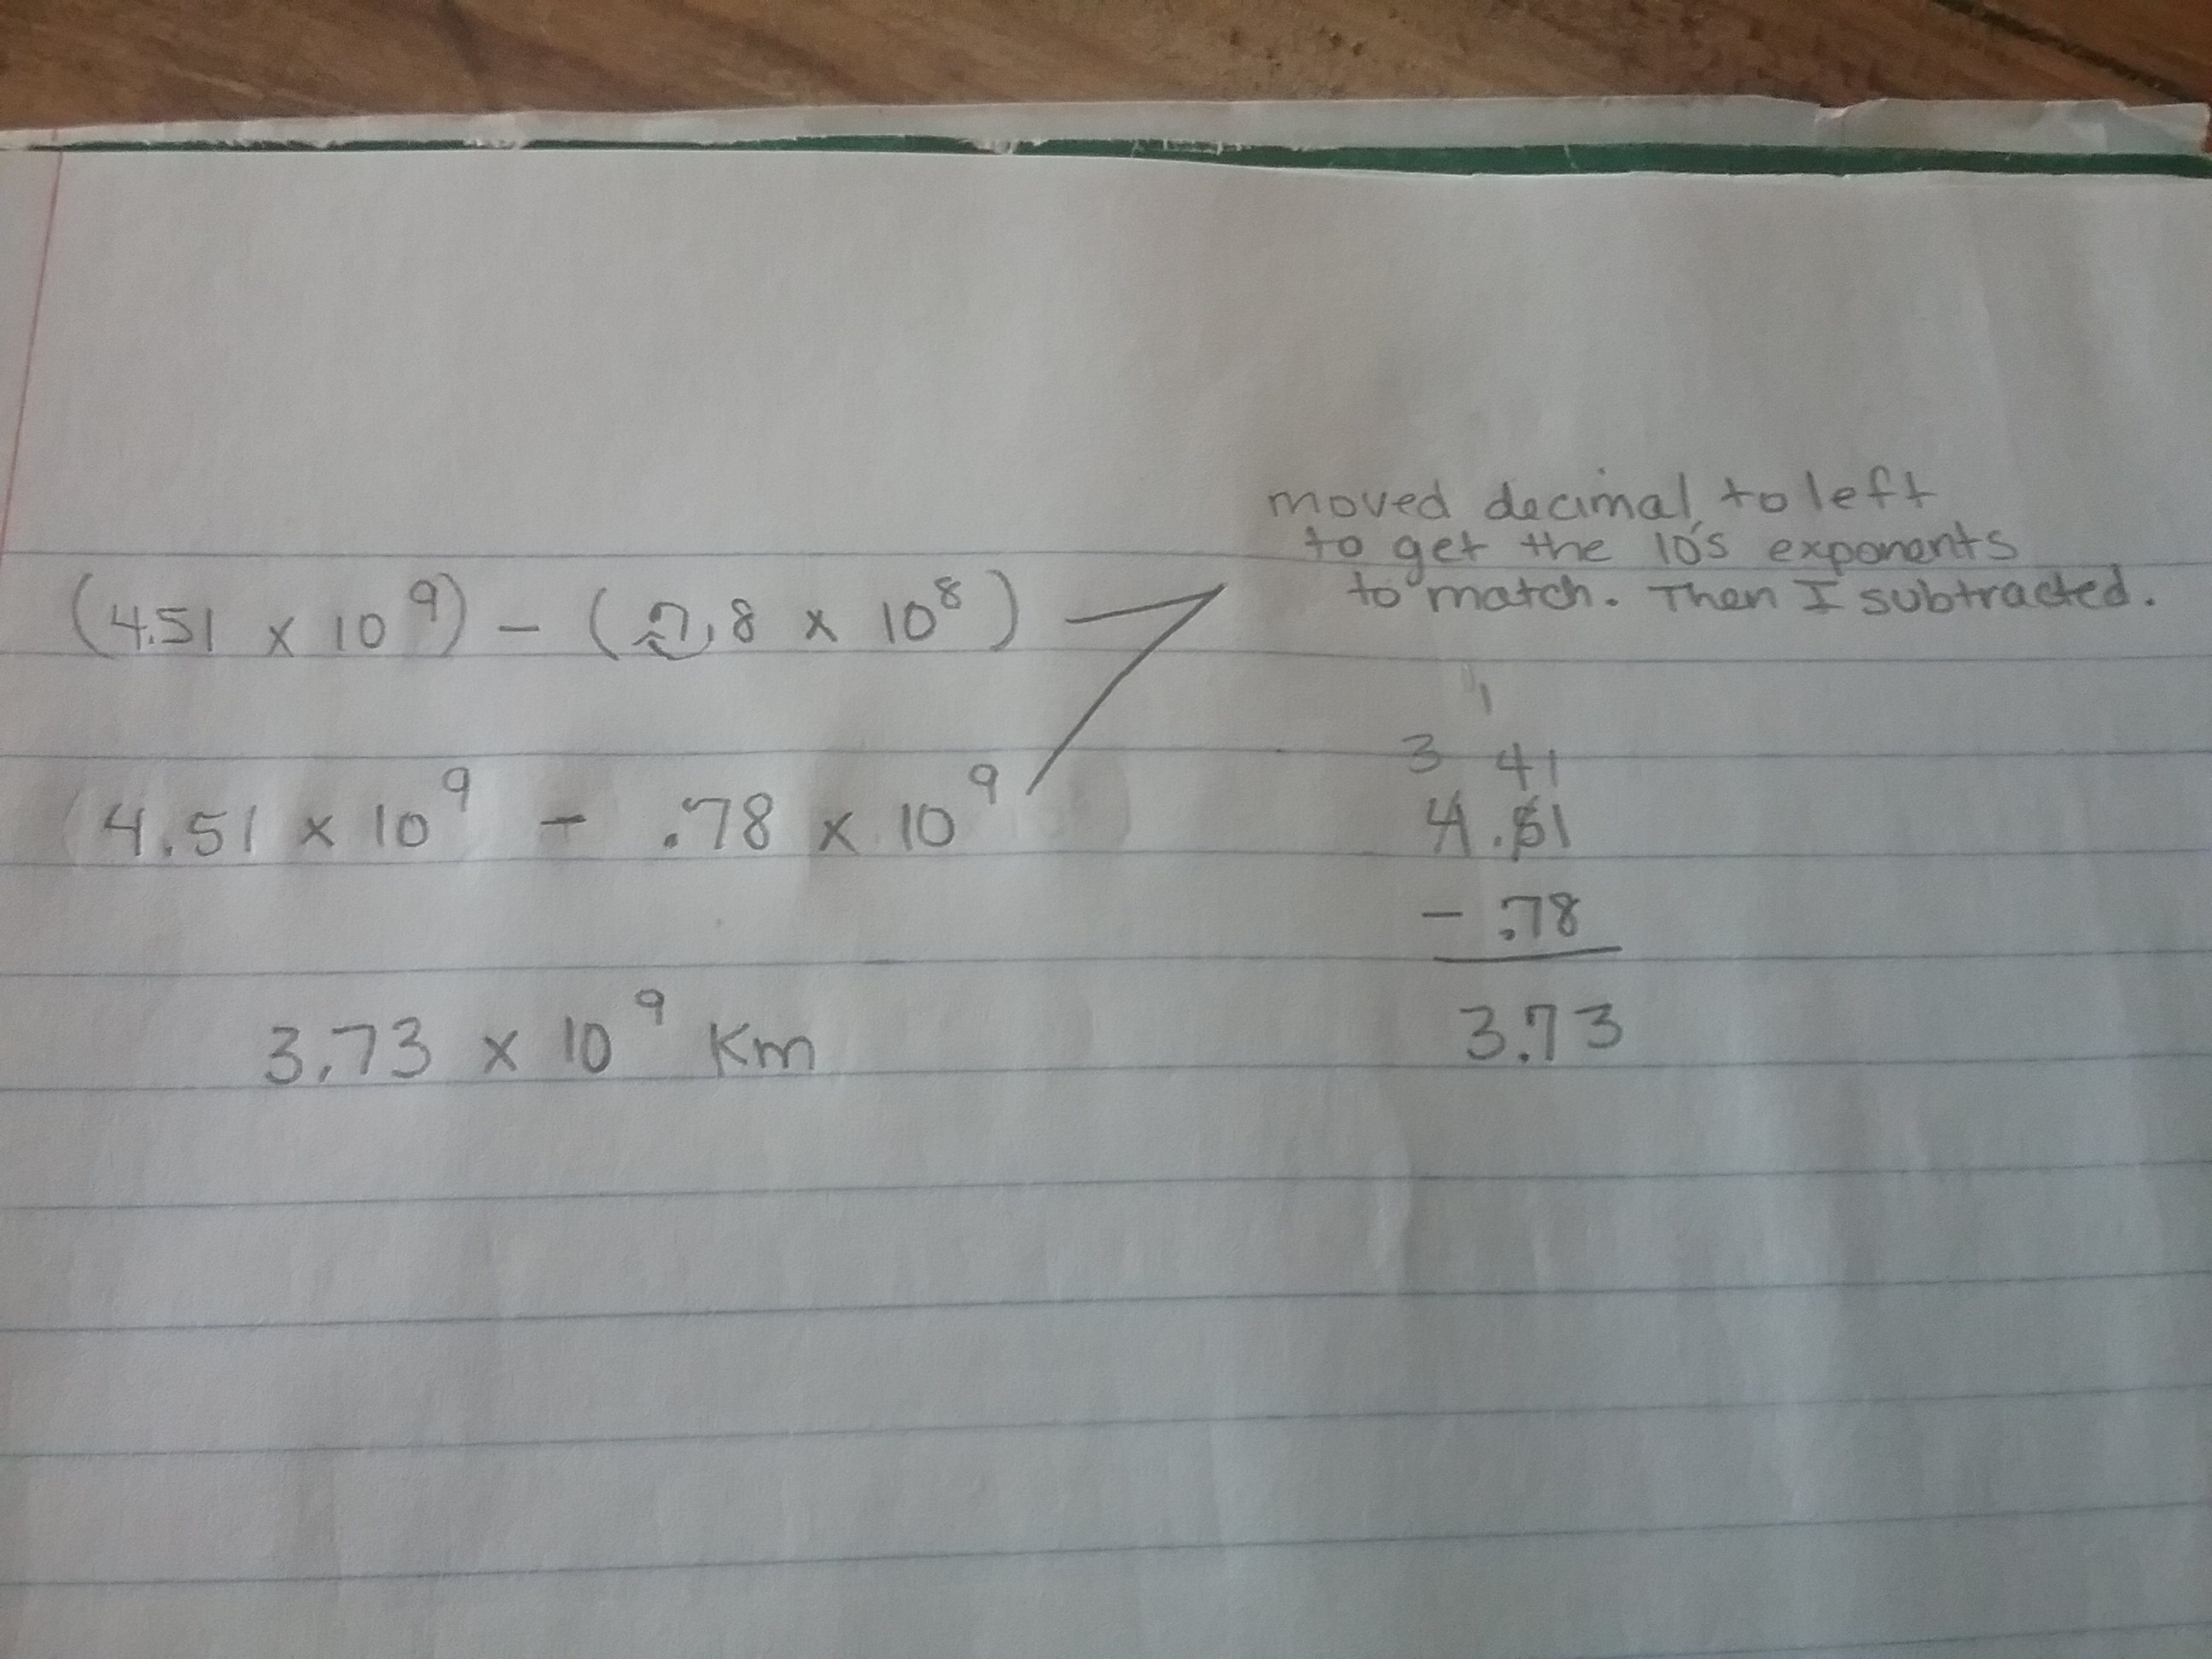 moved decimal to left
to get the 10's exponents
to match. Then I subtracted.
(4.51 x 10⁹) - (7.8 x 10⁸)
4.51 x 10⁹ - .78 x 10⁹
3.73 x 10⁹ Km
1
3 41
4.51
- .78
3.73